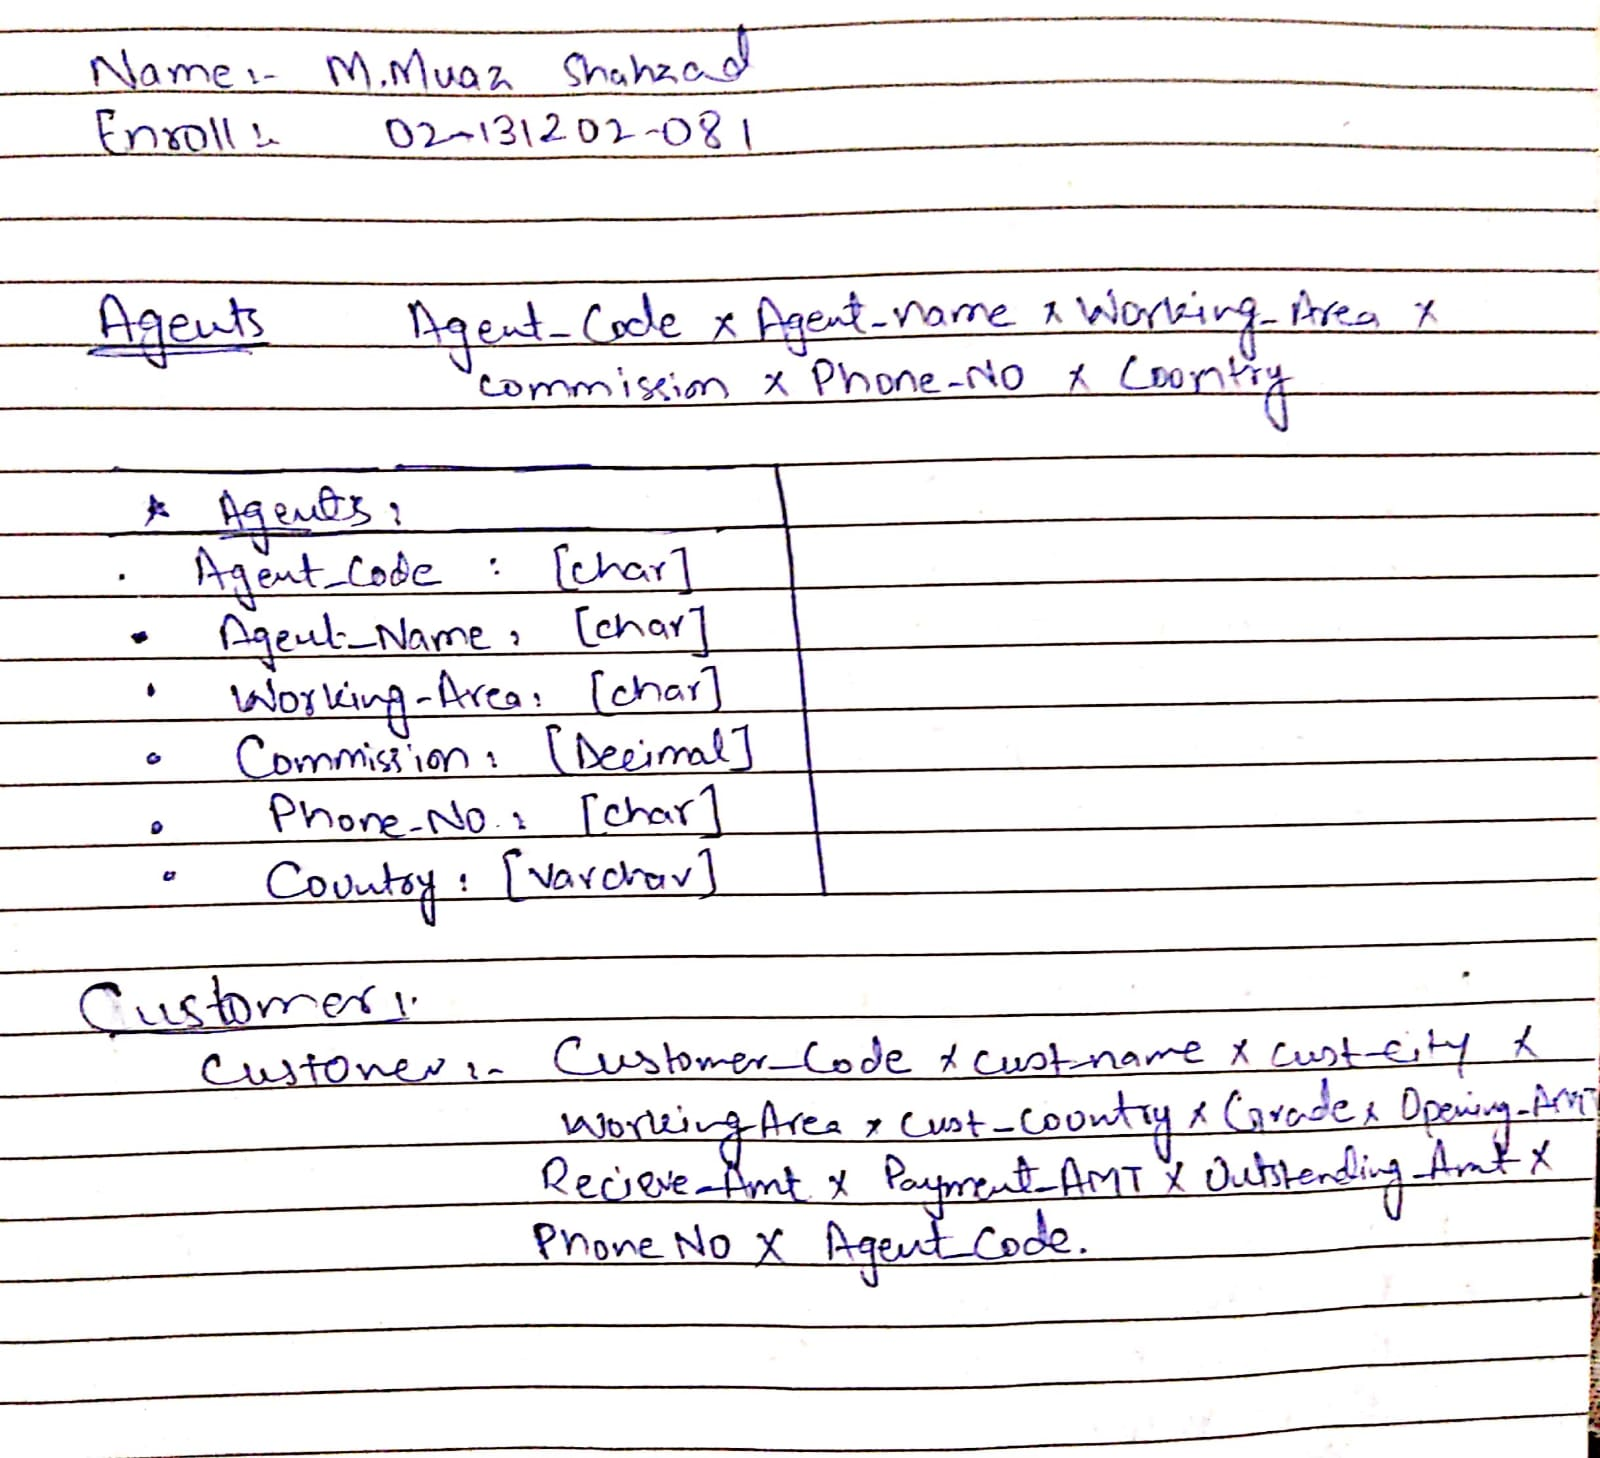 Name:- M.Muaz Shahzad
Enroll:- 02-131202-081
Agents Agent_Code x Agent_name x Working_Area x
commission x Phone_No x Coomtry
* Agents:
. Agent_Code : [char]
• Agent_Name: [char]
• Working-Area: [char]
• Commission: [Decimal]
• Phone_No.: [char]
• Country: [Varchar]
Customer:-
Customer:- Customer_Code x cust_name x cust_city x
Working Area x Cust_Coontry x Grade x Opening_AMT
Recieve_Amt x Payment_AMT x Outstending_Amt x
Phone No x Agent_Code.